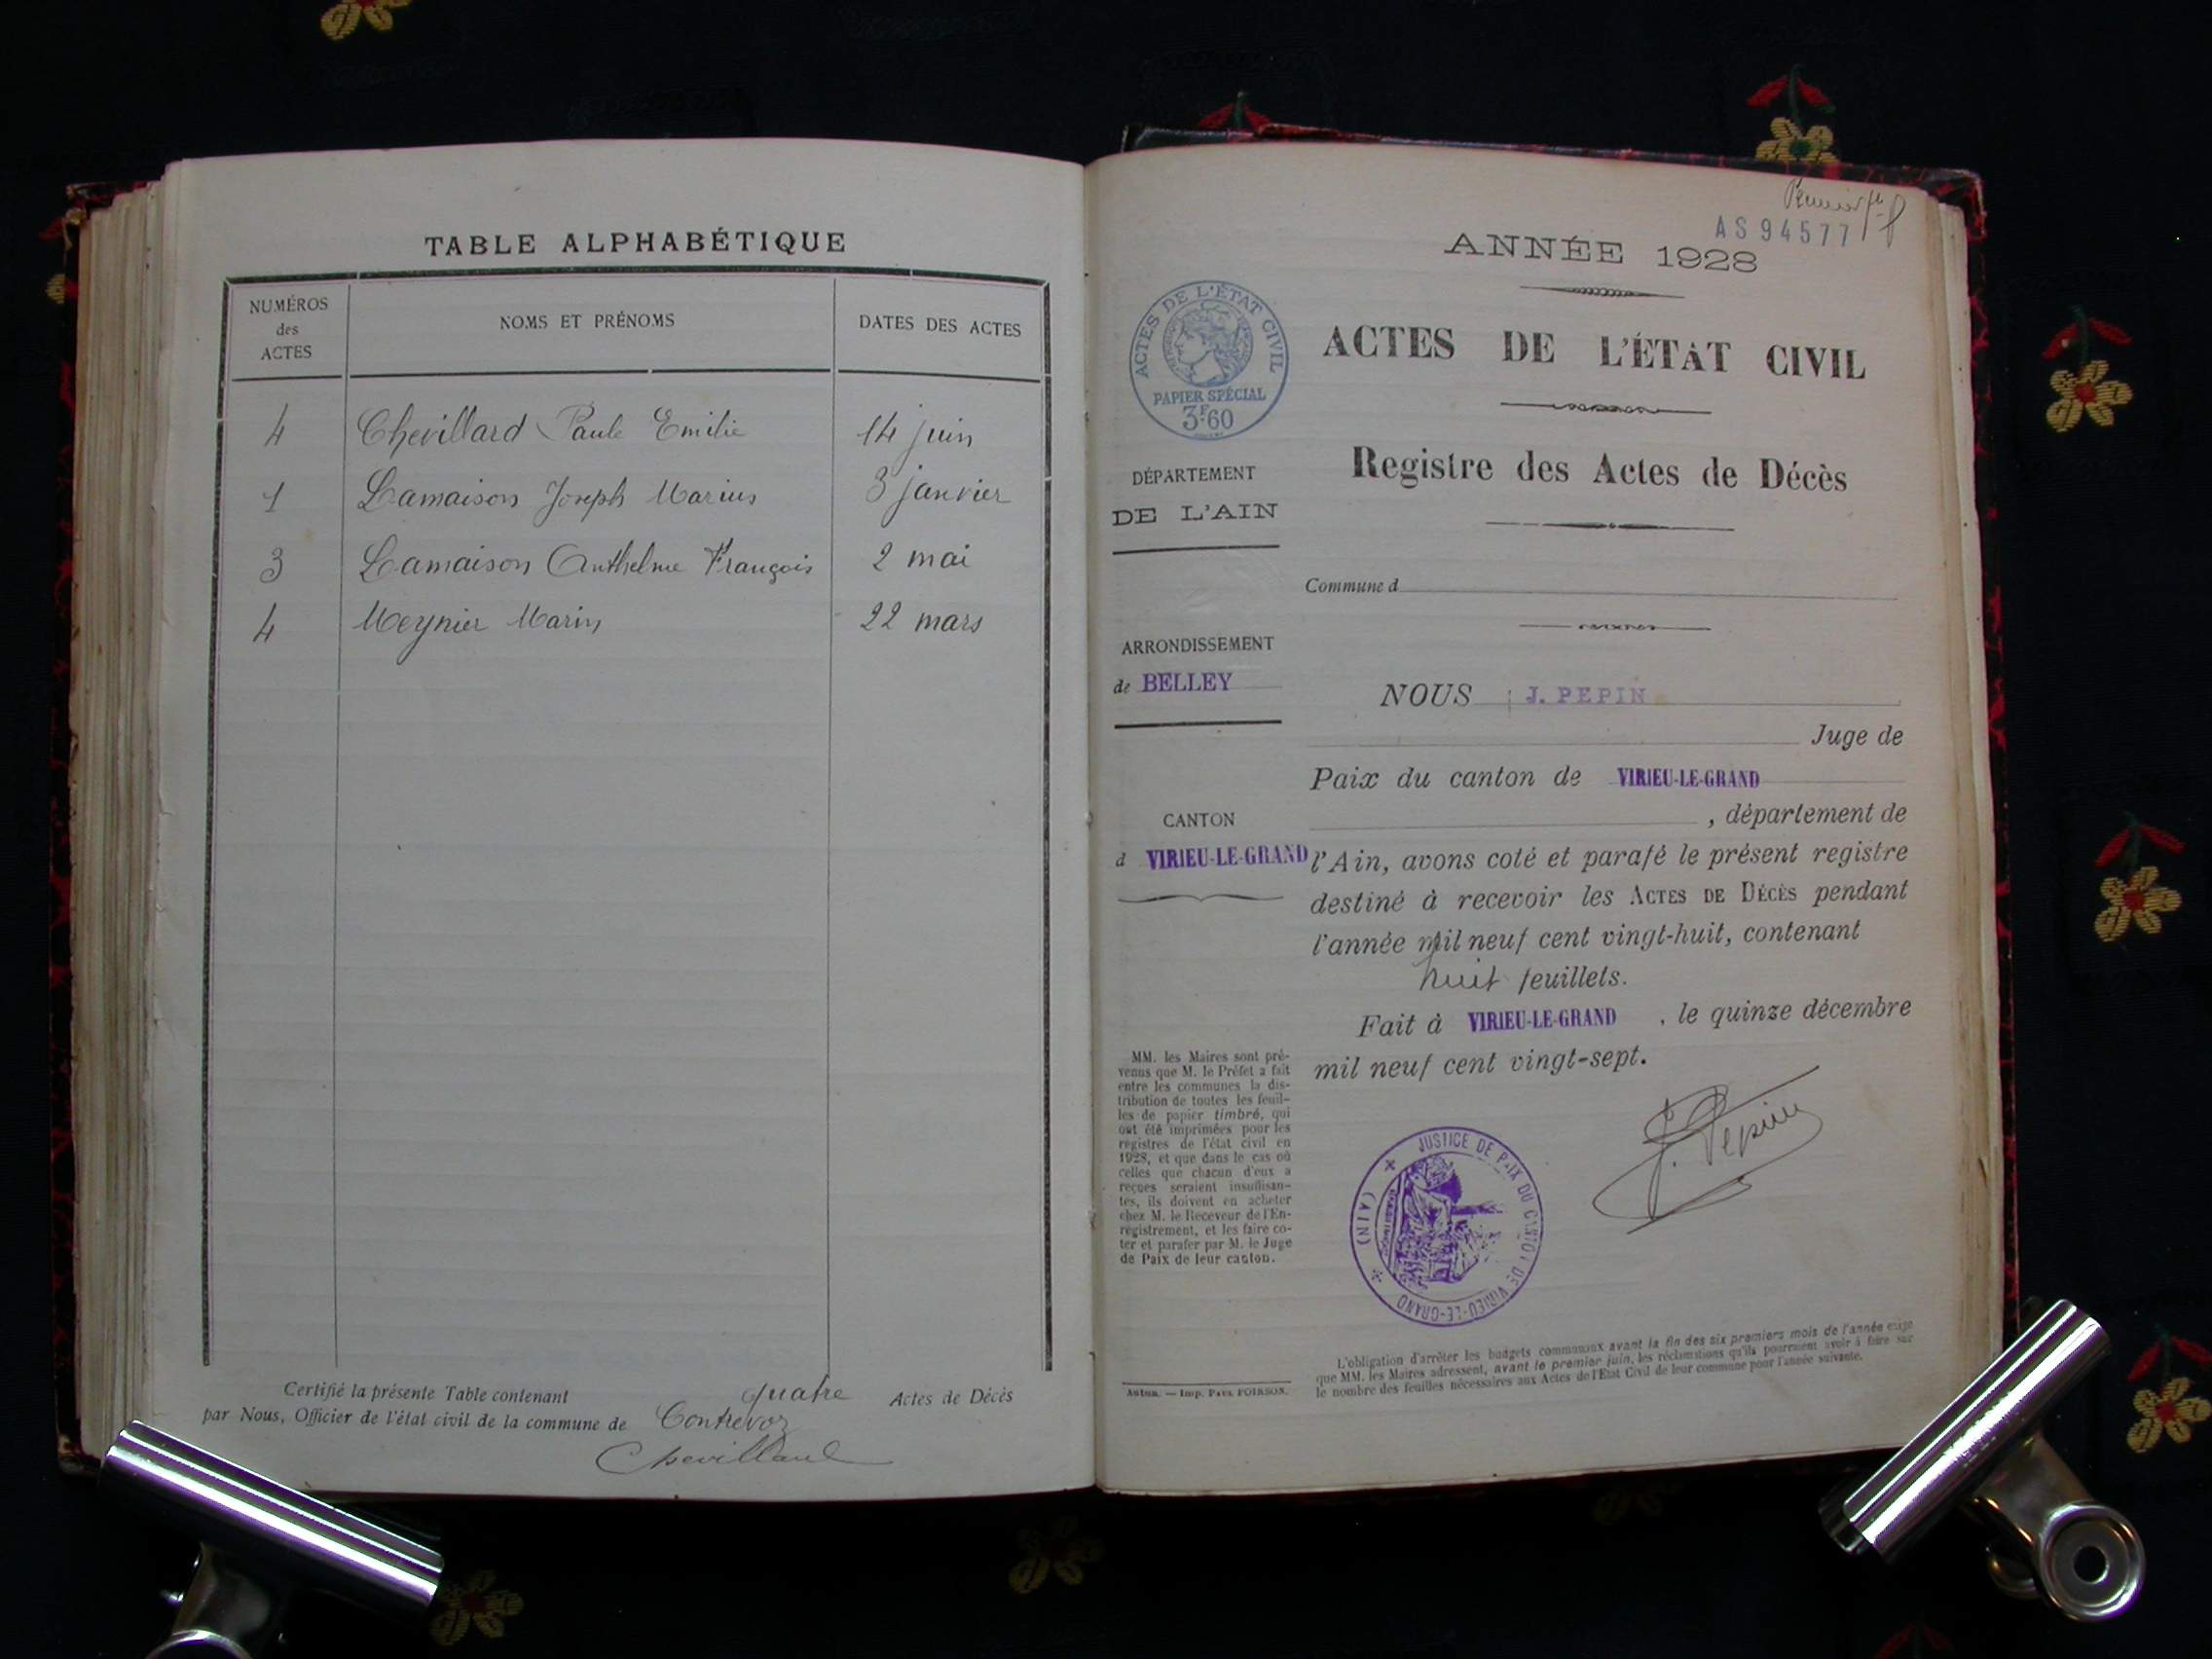 TABLE ALPHABÉTIQUE
NUMÉROS
des
ACTES
NOMS ET PRÉNOMS
DATES DES ACTES
4 Chevillard Paule Emilie 14 juin
1 Lamaison Joseph Marius 3 janvier
3 Lamaison Anthelme François 2 mai
4 Meynier Marin 22 mars
Certifié la présente Table contenant quatre Actes de Décès
par Nous, Officier de l'état civil de la commune de Contrevoz
Chevillard
AS 94577
ANNÉE 1928
ACTES DE L'ÉTAT CIVIL
PAPIER SPÉCIAL
3F.60
ACTES DE L'ÉTAT CIVIL
Registre des Actes de Décès
DÉPARTEMENT
DE L'AIN
Commune d
ARRONDISSEMENT
de BELLEY
NOUS J. PEPIN
Juge de
Paix du canton de VIRIEU-LE-GRAND
CANTON
d VIRIEU-LE-GRAND
, département de
l'Ain, avons coté et parafé le présent registre
destiné à recevoir les ACTES DE DÉCÈS pendant
l'année mil neuf cent vingt-huit, contenant
huit feuillets.
Fait à VIRIEU-LE-GRAND , le quinze décembre
mil neuf cent vingt-sept.
J. Pepin
MM. les Maires sont pré-
venus que M. le Préfet a fait
entre les communes la dis-
tribution de toutes les feuil-
les de papier timbré, qui
ont été imprimées pour les
registres de l'état civil en
1928, et que dans le cas où
celles que chacun d'eux a
reçues seraient insuffisan-
tes, ils doivent en acheter
chez M. le Receveur de l'En-
registrement, et les faire co-
ter et parafer par M. le Juge
de Paix de leur canton.
JUSTICE DE PAIX DU CANTON DE VIRIEU-LE-GRAND
(AIN)
Autun. — Imp. PAUL POIRSON.
L'obligation d'arrêter les budgets communaux avant la fin des six premiers mois de l'année exige
que MM. les Maires adressent, avant le premier juin, les réclamations qu'ils pourraient avoir à faire sur
le nombre des feuilles nécessaires aux Actes de l'État Civil de leur commune pour l'année suivante.